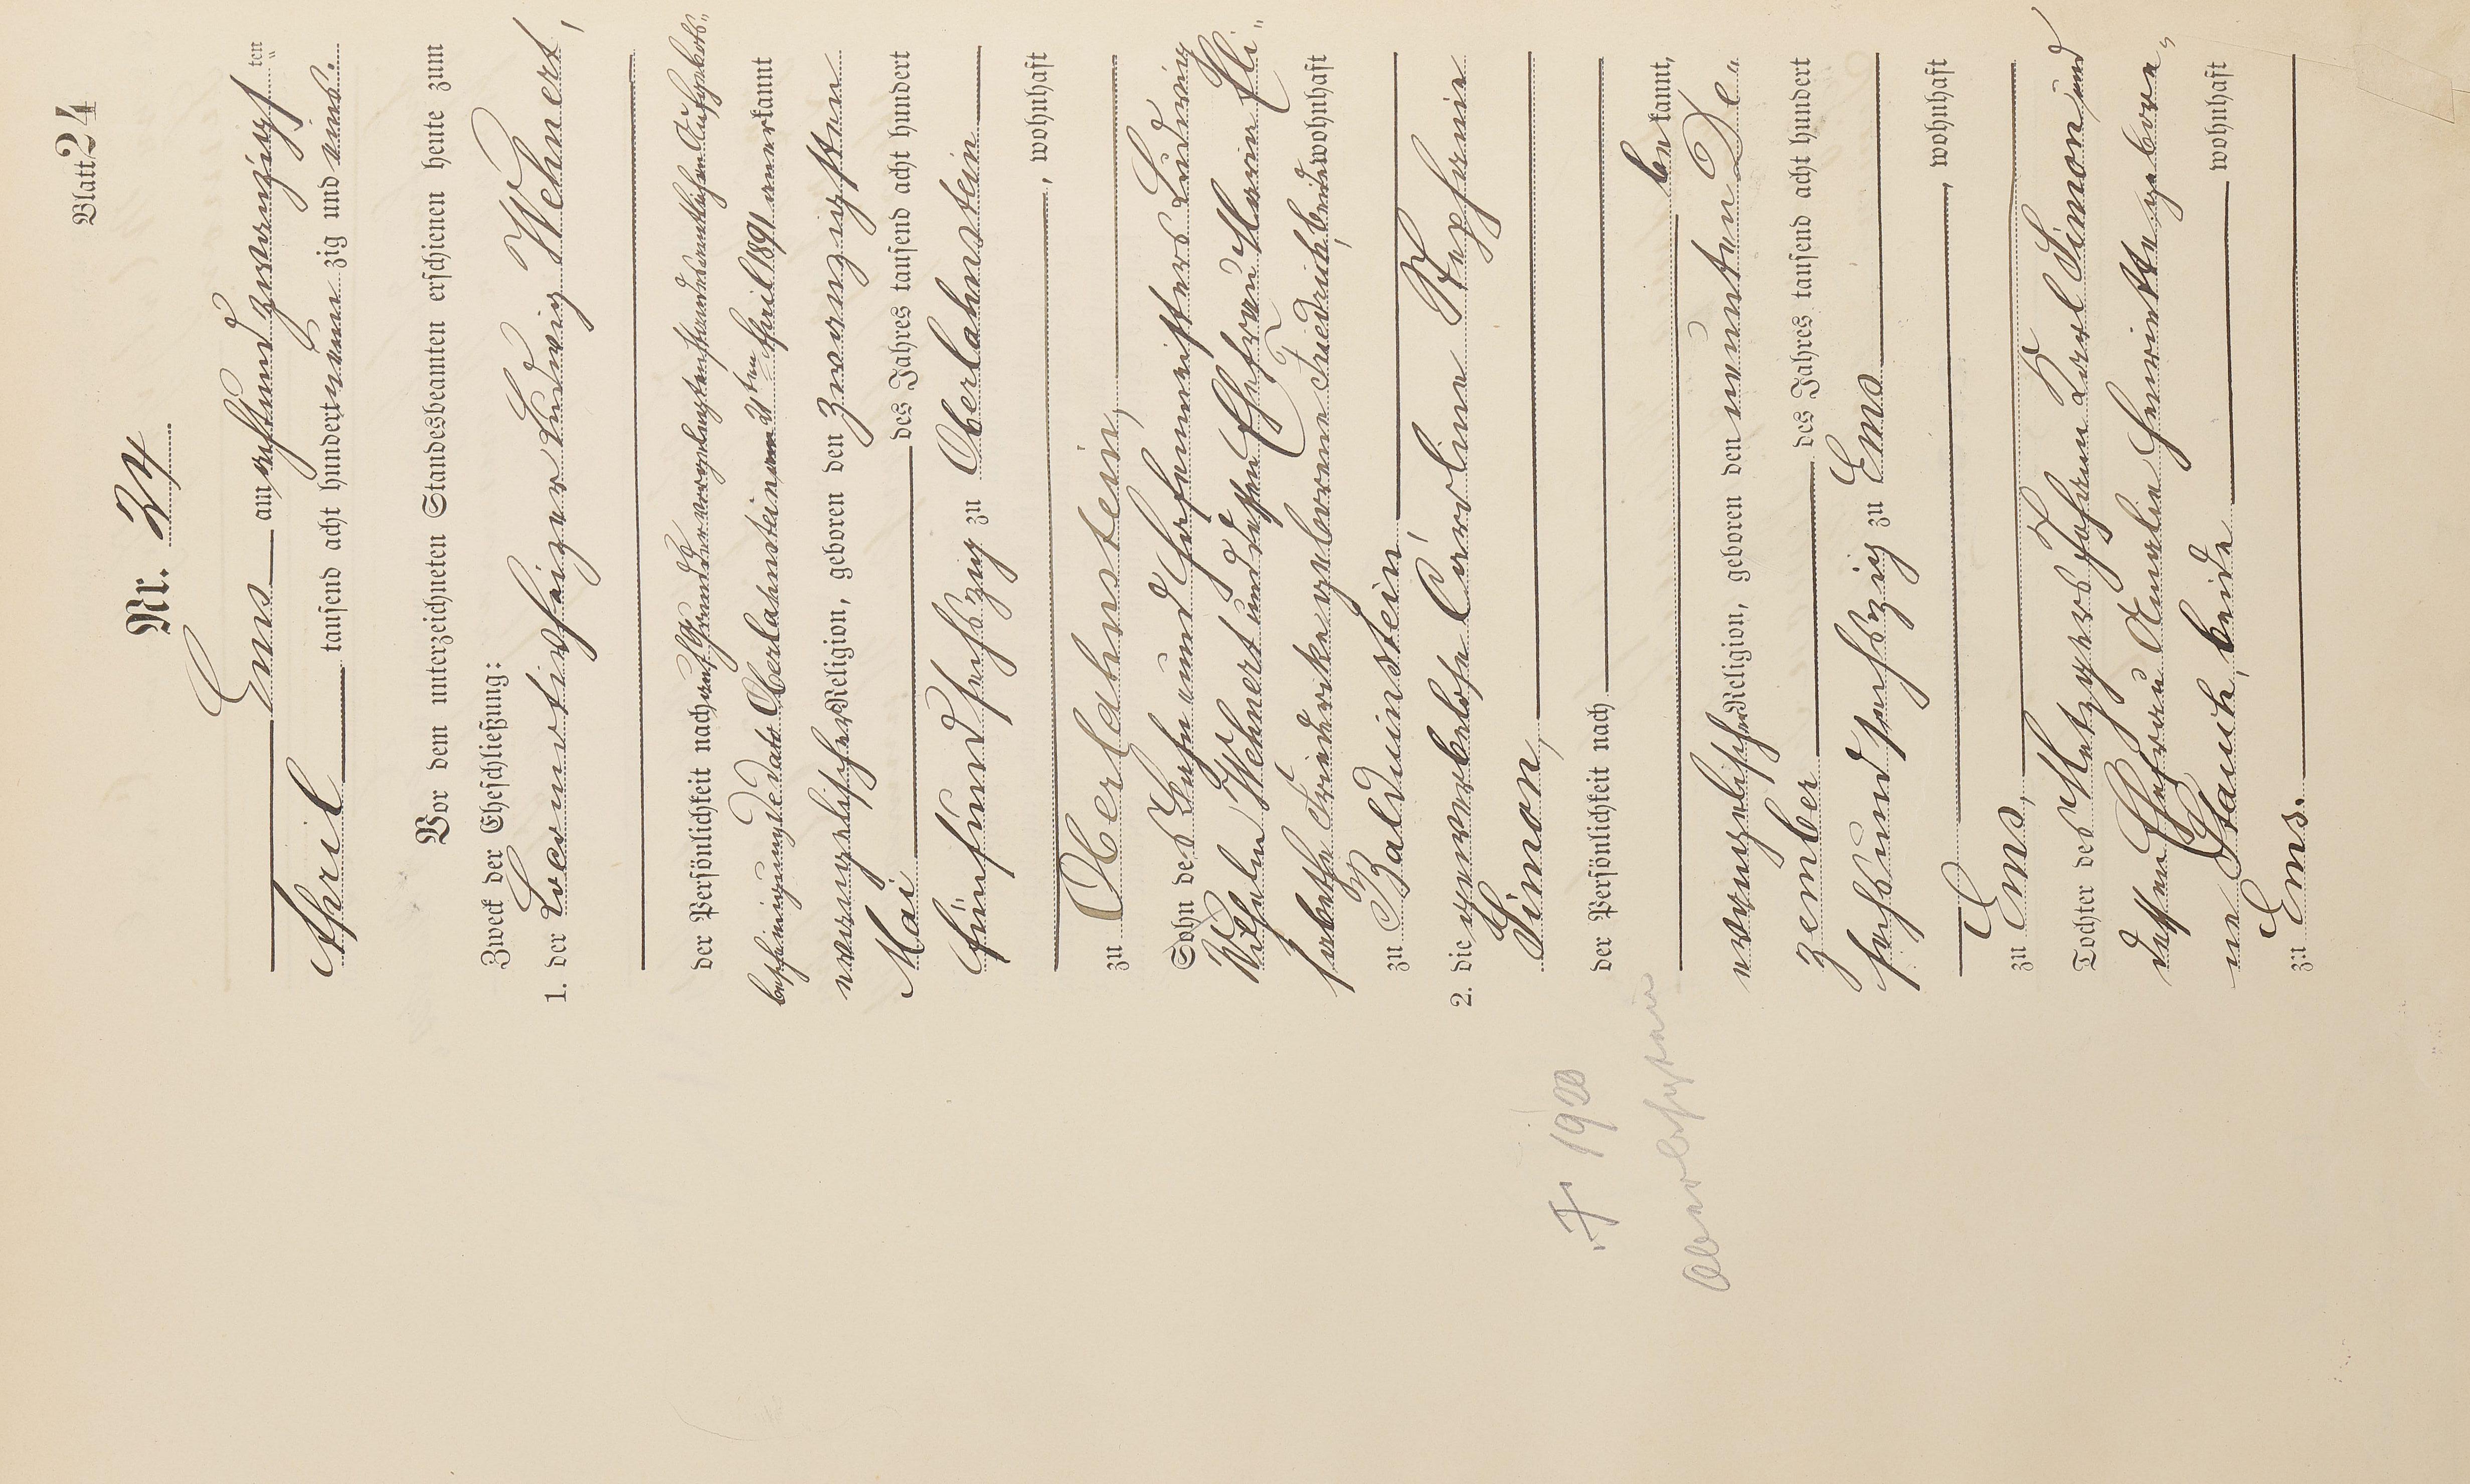 Blatt 24
Nr. 24
Ems am achtundzwanzigsten
April tausend acht hundert neunzig und eins.
Vor dem unterzeichneten Standesbeamten erschienen heute zum
Zweck der Eheschließung:
1. der Locomotivheizer Ludwig Wehnert,
der Persönlichkeit nach auf Grund der vorgelegten standesamtlichen Aufgebots-
bescheinigung de dato Oberlahnstein am 21ten April 1891 anerkannt
evangelischer Religion, geboren den zwanzigsten
Mai des Jahres tausend acht hundert
fünfundsechszig zu Oberlahnstein
, wohnhaft
zu Oberlahnstein,
Sohn des Huf- und Bahnmeisters Ludwig
Wilhelm Wehnert und dessen Ehefrau Maria Eli-
sabetha Friederike geborene Friedrich, beide wohnhaft
zu Balduinstein,
2. die gewerbelose Caroline Stephanie
Simon,
der Persönlichkeit nach
bekannt,
evangelischer Religion, geboren den neunten De-
zember des Jahres tausend acht hundert
sechsundsechszig zu Ems
, wohnhaft
zu Ems,
Tochter des Metzgers Johann Karl Simon und
dessen Ehefrau Amalie Henriette gebore-
ne Stauch, beide wohnhaft
zu Ems.
1900